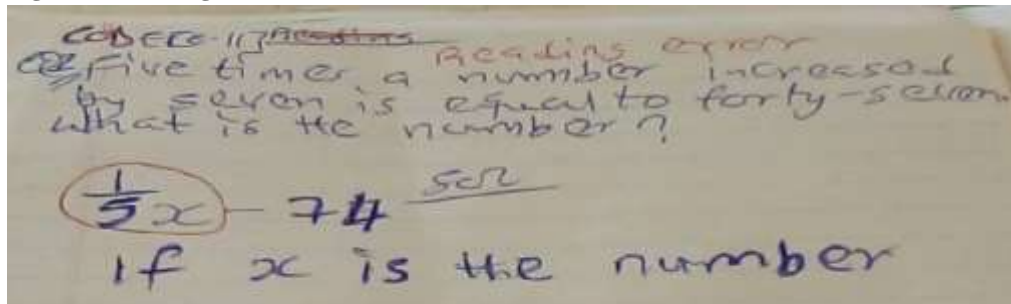 CODECO-117 Reading error
Q2 Five times a number increased
by seven is equal to forty-seven.
What is the number?
Soln
1/5 x - 74
If x is the number